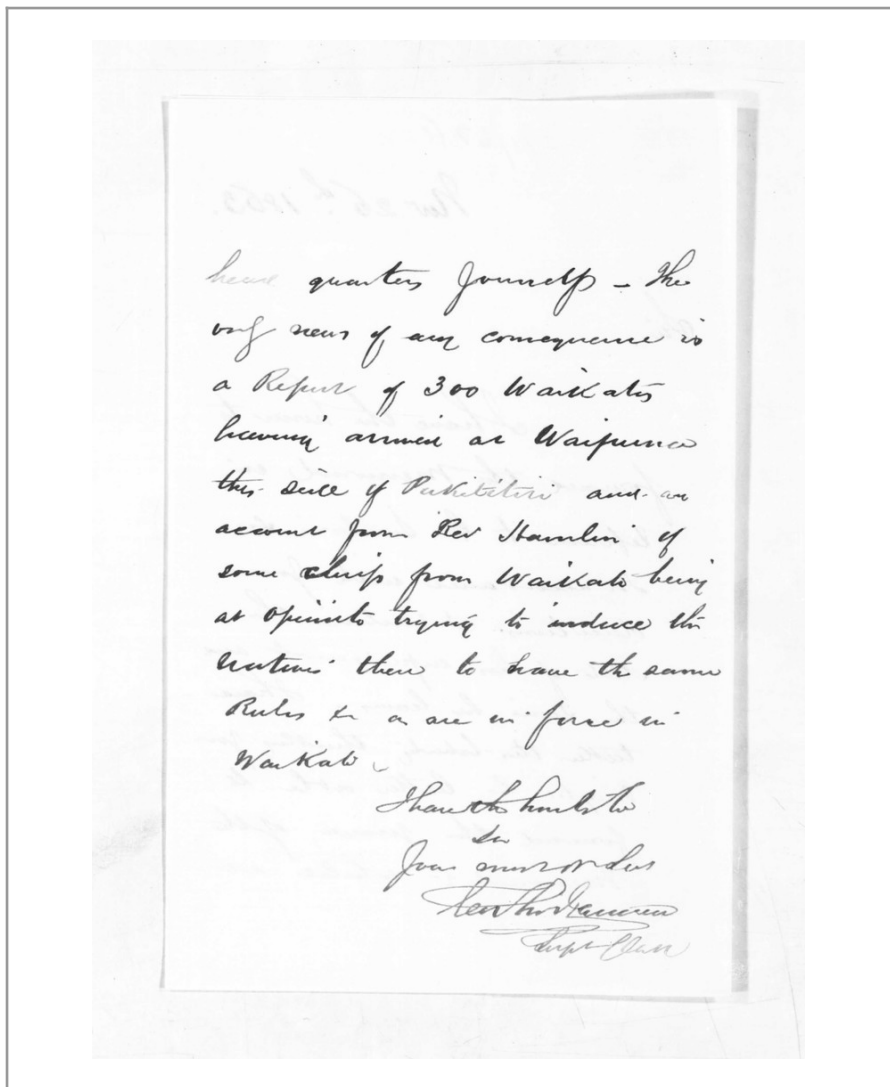 head quarters yourself – The
only news of any consequence is
a Report of 300 Waikatos
having arrived at
this side of Putititiri and an
account from Rev Hamlin of
some chiefs from Waikato being
at trying to induce the
natives there to have the same
Rules &c as are in force in
Waikato.
I have the honor to be
Sir
Your most ob Ser